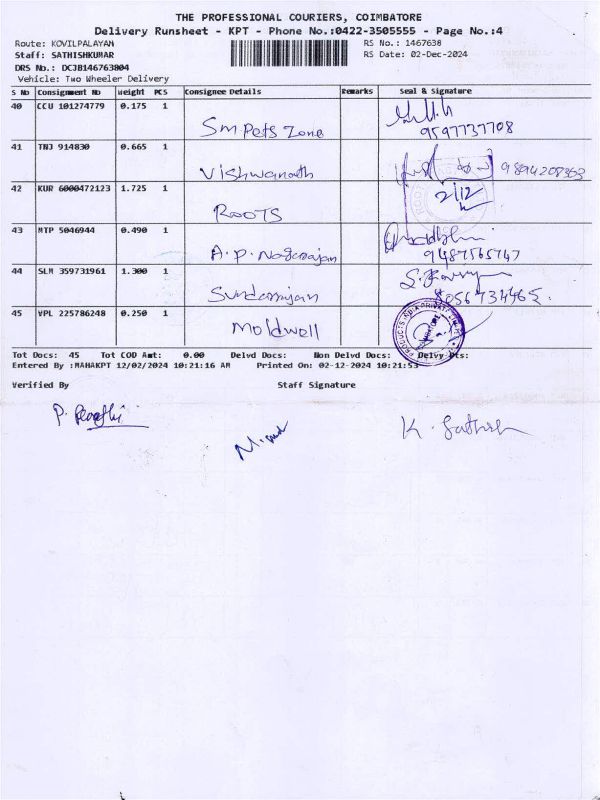 THE PROFESSIONAL COURIERS, COIMBATORE
Delivery Runsheet - KPT - Phone No.:0422-3505555 - Page No.:4
Route: KOVILPALAYAM RS No.: 1467638
Staff: SATHISHKUMAR RS Date: 02-Dec-2024
DRS No.: DCJB146763804
Vehicle: Two Wheeler Delivery
S No Consignment No Weight PCS Consignee Details Remarks Seal & Signature
40 CCU 101274779 0.175 1
Sm Pets Zone 9597737708
41 TNJ 914830 0.665 1
Vishwanath 9894208363
42 KUR 6000472123 1.725 1
ROOTS 2/12
43 MTP 5046944 0.490 1
A.P. Nagarajan 9487565747
44 SLM 359731961 1.300 1
Sundarrajan 8056734465.
45 VPL 225786248 0.250 1
Moldwell
Tot Docs: 45 Tot COD Amt: 0.00 Delvd Docs: Non Delvd Docs: Delvy Pts:
Entered By :MAHAKPT 12/02/2024 10:21:16 AM Printed On: 02-12-2024 10:21:53
Verified By Staff Signature
K. Sathish